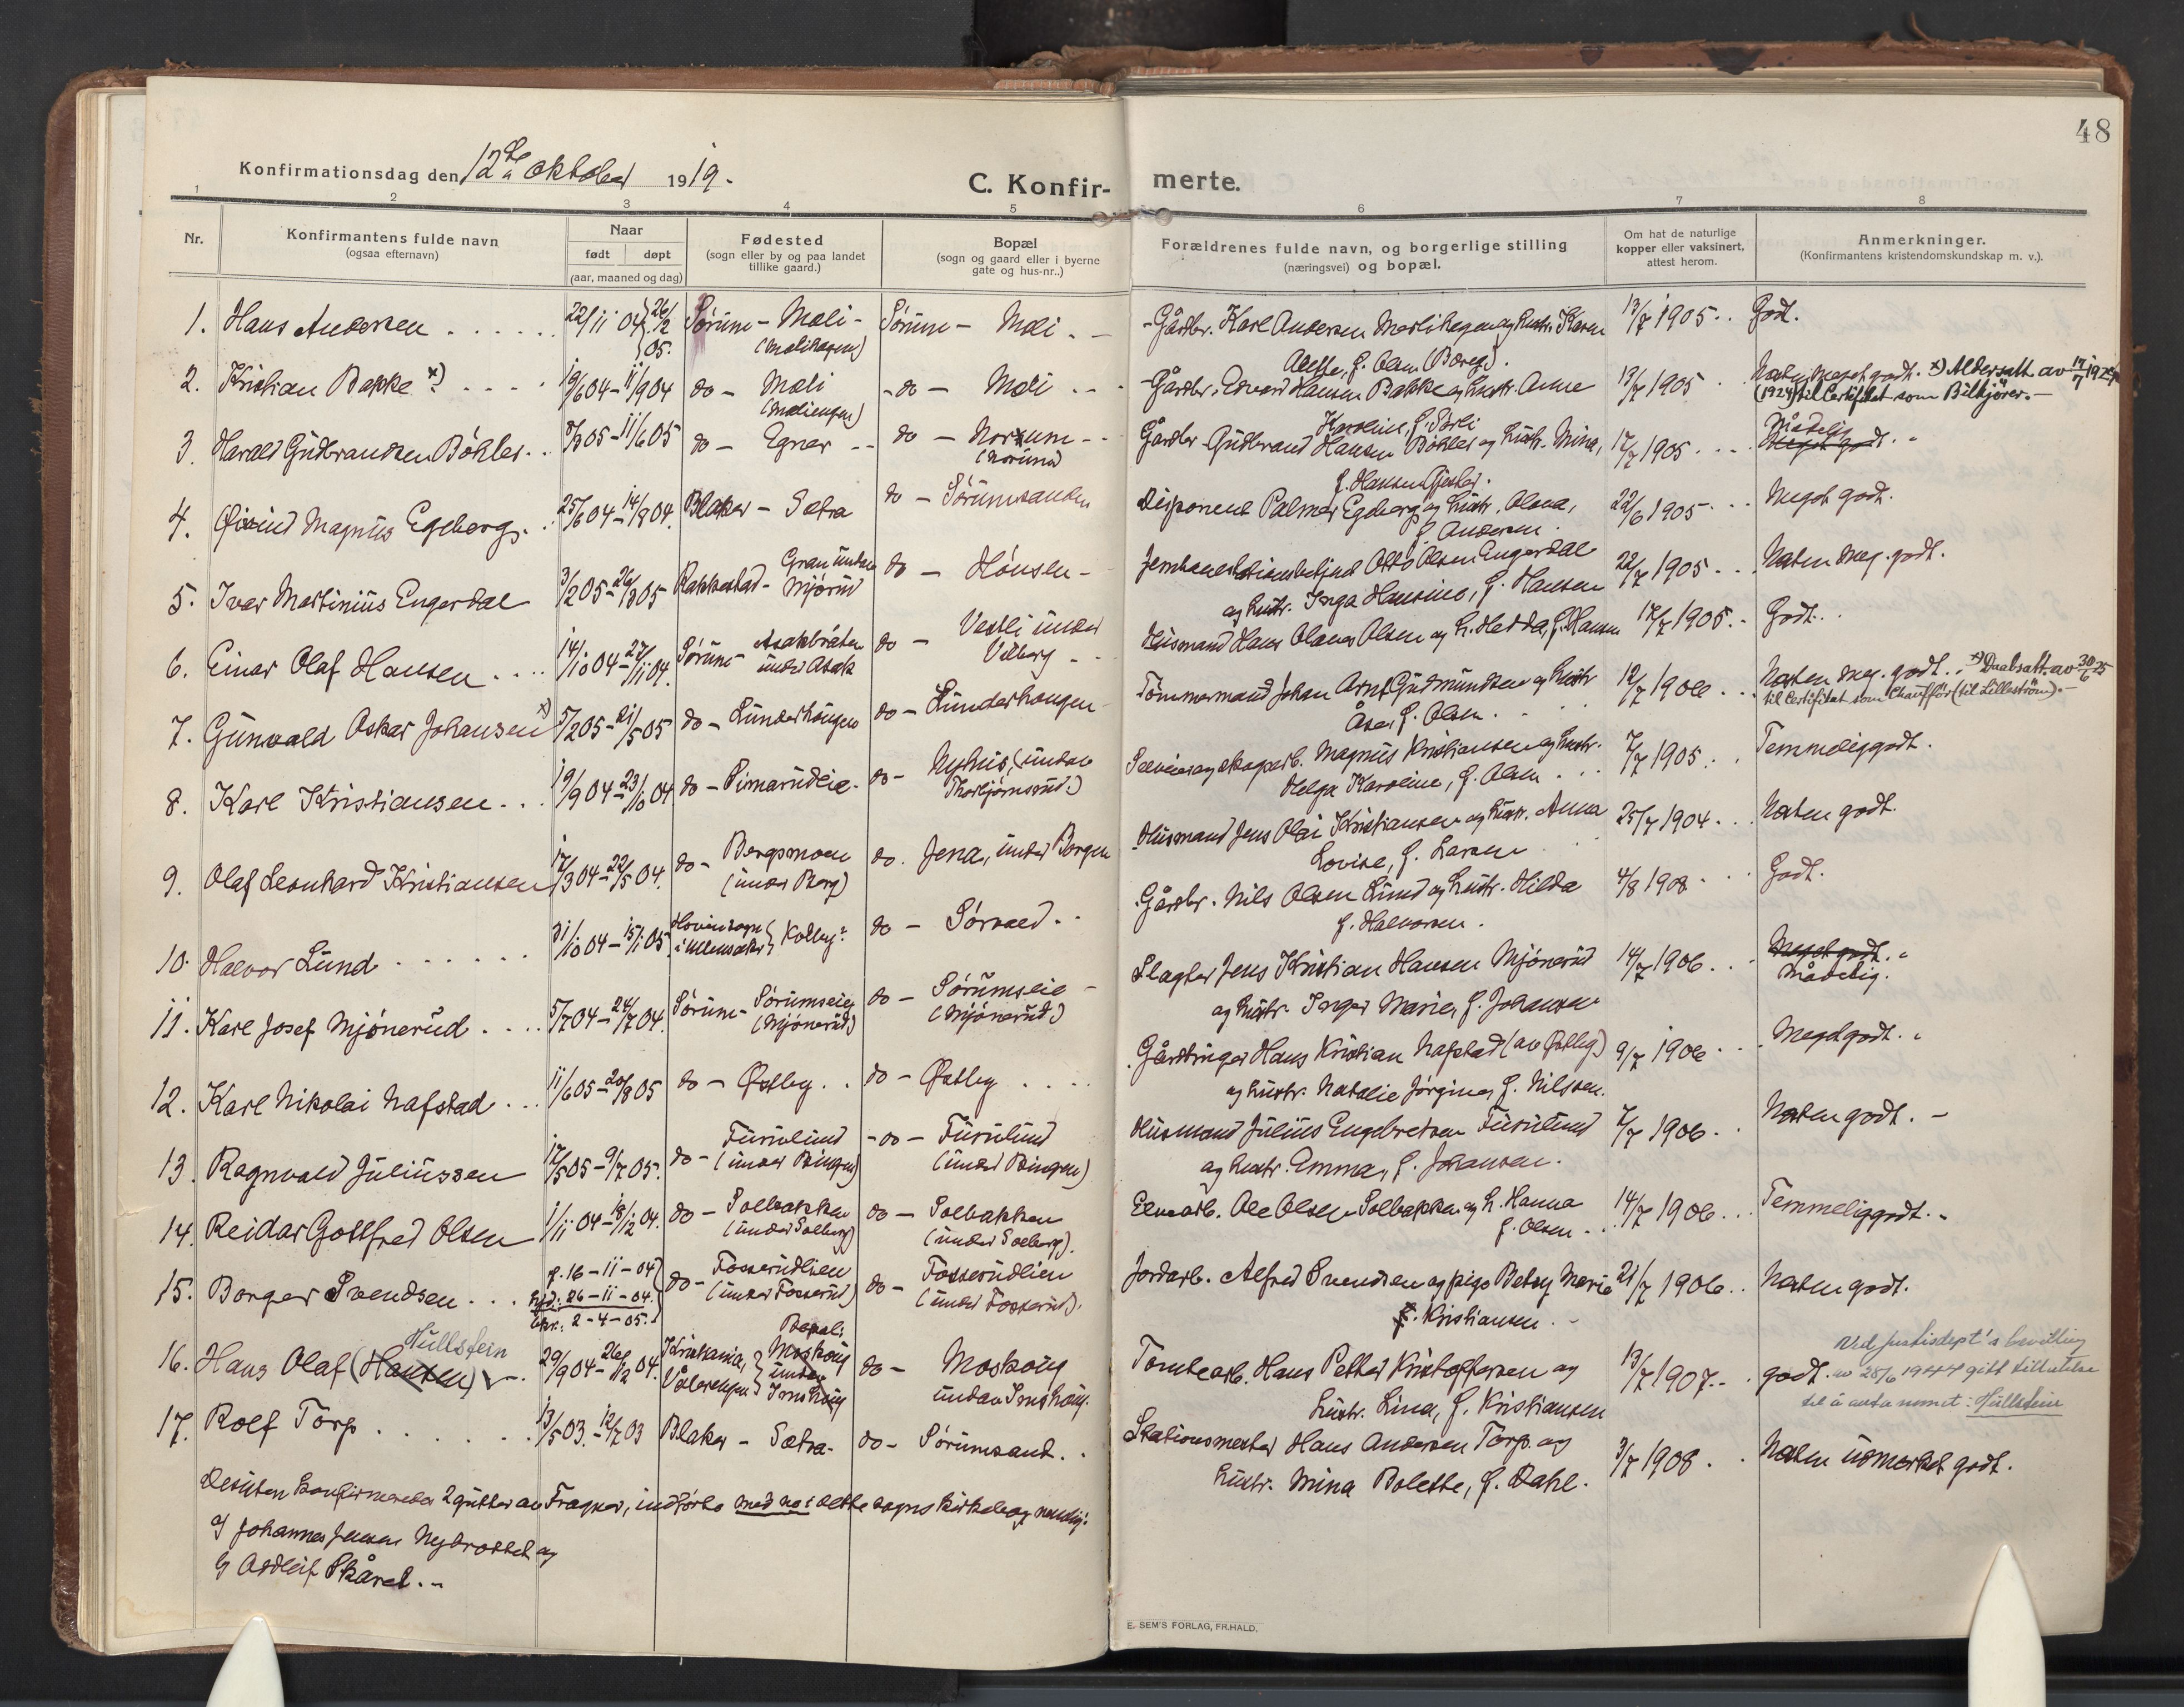 48
Konfirmationsdag den 12te oktober 1919.
C. Konfir-merte.
1 2 3 4 5 6 7 8
Nr.
Konfirmantens fulde navn
(ogsaa efternavn)
Naar
født døpt
(aar, maaned og dag)
Fødested
(sogn eller by og paa landet
tillike gaard.)
Bopæl
(sogn og gaard eller i byerne
gate og hus-nr..)
Forældrenes fulde navn, og borgerlige stilling
(næringsvei) og bopæl.
Om hat de naturlige
kopper eller vaksinert,
attest herom.
Anmerkninger.
(Konfirmantens kristendomskundskap m. v.).
1. Hans Andersen 22/11 04 26/12 05. Sörum - Mæli - (Mælihagen) Sörum - Mæli - Gårdbr. Karl Andersen Mælihagen og hustr. Karen 13/7 1905 Godt.
f. Olsen (Boreg).
2. Kristian Bakke x) 19/6 04 - 11/9 04 do - Mæli (Mæliengen) do - Mæli - Gårdbr. Edvard Hansen Bakke og hustr. Anne 13/7 1905 Næsten meget godt. x) Aldersatt. av 17/7 1924
Karoline, f. (1924) til Certifikat som Bilkjører. -
3. Harald Gudbrandsen Böhler 3/3 05 - 11/6 05 do - Egner do - Norum (Norum) Gårdbr. Gudbrand Hansen Böhler og hustr. Mina, 17/7 1905 Meget godt. Mådelig
f. Hansen
4. Öivind Magnus Egeberg 25/6 04 - 14/8 04. Blaker - Sætra do - Sörumsanden Disponent Palmer Egeberg og hustr. Olava, 22/6 1905 Meget godt.
f. Andersen.
5. Ivar Martinius Engerdal 3/2 05 - 26/3 05 Rakkestad - Gran under Mjörud do - Hönsen - Jernbanestationsbetjent Otto Olsen Engerdal 22/7 1905 Næsten meg. godt.
og hustr. Inga Hansine, f. Hansen
6. Einar Olaf Hansen 14/10 04 - 27/11 04. Sörum - Asakbråten under Asak do - Vestli under Vilberg Husmand Hans Olaves Olsen og h. Hedda, f. Hansen 17/7 1905. Godt.
7. Gunvald Oskar Johansen x) 5/2 05 - 21/5 05 do - Lunderhaugen do - Lunderhaugen Tömmermand Johan Arnt Gudmundsen og hustr. 12/7 1906 Næsten meg. godt. x) Daabsatt. av 30/6 25
Åse, f. Olsen. til Certifikat som Chaufför (til Lilleström). -
8. Karl Kristiansen 19/9 04 - 23/10 04 do - Rimarudeie - do - Nyhus, (under Thorbjörnsrud.) Magnus Kristiansen og hustr. 7/7 1905 Temmelig godt.
Helga Karoline, f. Olsen
9. Olaf Leonhard Kristiansen 17/3 04 - 22/5 04. do - Bergsmoen (under Berg) do. Jena, under Borgen Husmand Jens Olai Kristiansen og hustr. Anna 25/7 1904 Næsten godt.
Lovise, f. Larsen
10. Halvor Lund 31/10 04 - 15/1 05 Hovin sogn i Ullensaker} Kolby do - Sörvald Gårdbr. Nils Olsen Lund og hustr. Hilda 4/8 1908 Godt.
f. Halvorsen.
11. Karl Josef Mjönerud 5/7 04 - 24/7 04. Sörum - Sörumseie (Mjönerud.) do - Sörumseie (Mjönerud.) Slagter Jens Kristian Hansen Mjönerud 14/7 1906 Meget godt. Mådelig.
og hustr. Inger Marie, f. Johansen
12. Karl Nikolai Nafstad 11/6 05 - 20/8 05 do - Östby do - Östby Gårdbruger Hans Kristian Nafstad (av Östby) 9/7 1906 Meget godt.
og hustr. Natalie Jörgine, f. Nilssen.
13. Ragnvald Juliussen 17/5 05 - 9/7 05. do - Furulund (under Bingen) do - Furulund (under Bingen) Husmand Julius Engebretsen Furulund 7/7 1906 Næsten godt. -
og hustr. Emma, f. Johansen.
14. Reidar Gottfred Olsen 1/11 04 - 18/12 04. do - Solbakken (under Solberg) do - Solbakken (under Solberg). Elvearb. Ole Olsen Solbakken og h. Hanna 14/7 1906 Temmelig godt.
f. Olsen
15. Borger Svendsen f. 16-11-04 Hjd: 26-11-04. Ekr.: 2-4-05. do - Fosserudlien (under Fosserud) do - Fosserudlien (under Fosserud). Jordarb. Alfred Svendsen og pige Betsy Marie 21/7 1906 Næsten godt.
Kristiansen.
16. Hans Olaf (Hansen) Hullstein 29/9 04 - 26/12 04. Kristiania, Vålerengen Moskaug under Imshaug do - Moskaug under Imshaug. Tomtearb. Hans Petter Kristoffersen og 13/7 1907 godt. Ved Justisdept's bevilling av 28/6 1944 gitt tillatelse til å anta navnet: Hullstein
hustr. Lina, f. Kristiansen
17. Rolf Torp 13/5 03. - 12/7 03 Blaker - Sætra do - Sörumsand. Stationsmester Hans Andersen Torp og 3/7 1908 Næsten udmerket godt.
hustr. Mina Bolette, f. Dahl.
Desuten konfirmeredes 2 gutter av Frogner, indförte med no i dette sogns kirkebog nemlig:
a) Johannes Jensen Nybrottet og
b) Oddleif Skåret. -
E. SEM'S FORLAG, FR.HALD.